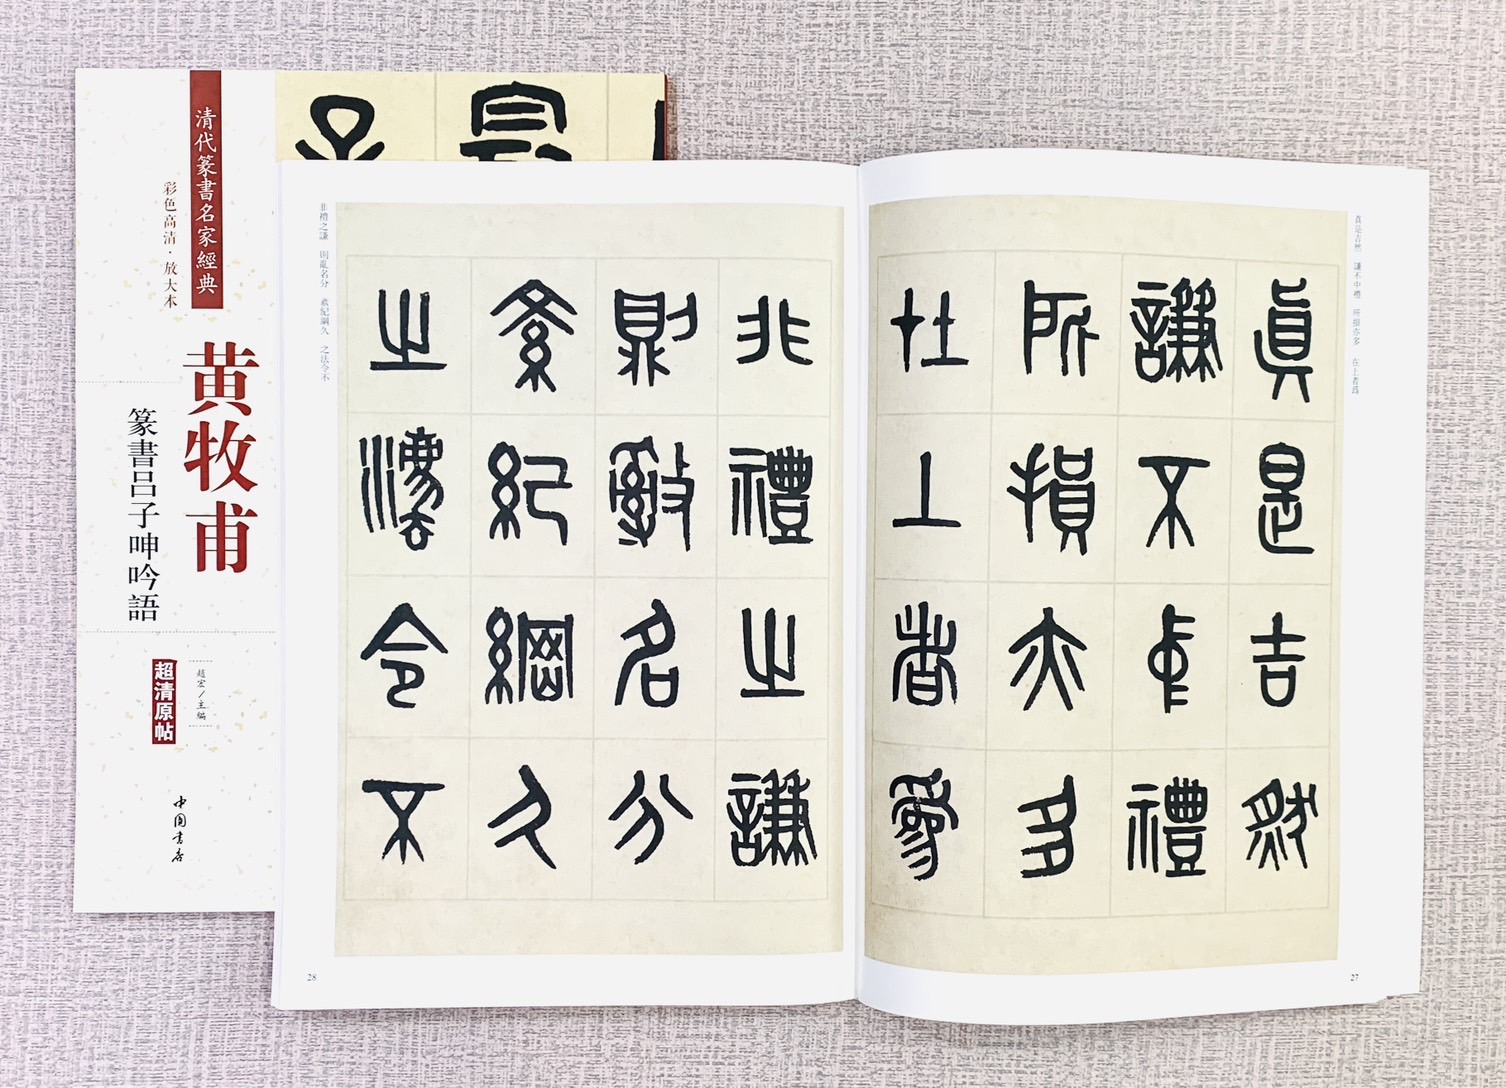 清代篆書名家經典
彩色高清·放大本
黄牧甫
篆書吕子呻吟語
趙宏/主編
超清原帖
中國書店
真是吉然 謙不中禮 所損亦多 在上者爲
眞是吉然
謙不中禮
所損亦多
在上者爲
27
非禮之謙
則亂名分
紊紀綱久
之灋令不
非禮之謙 則亂名分 紊紀綱久 之法令不
28